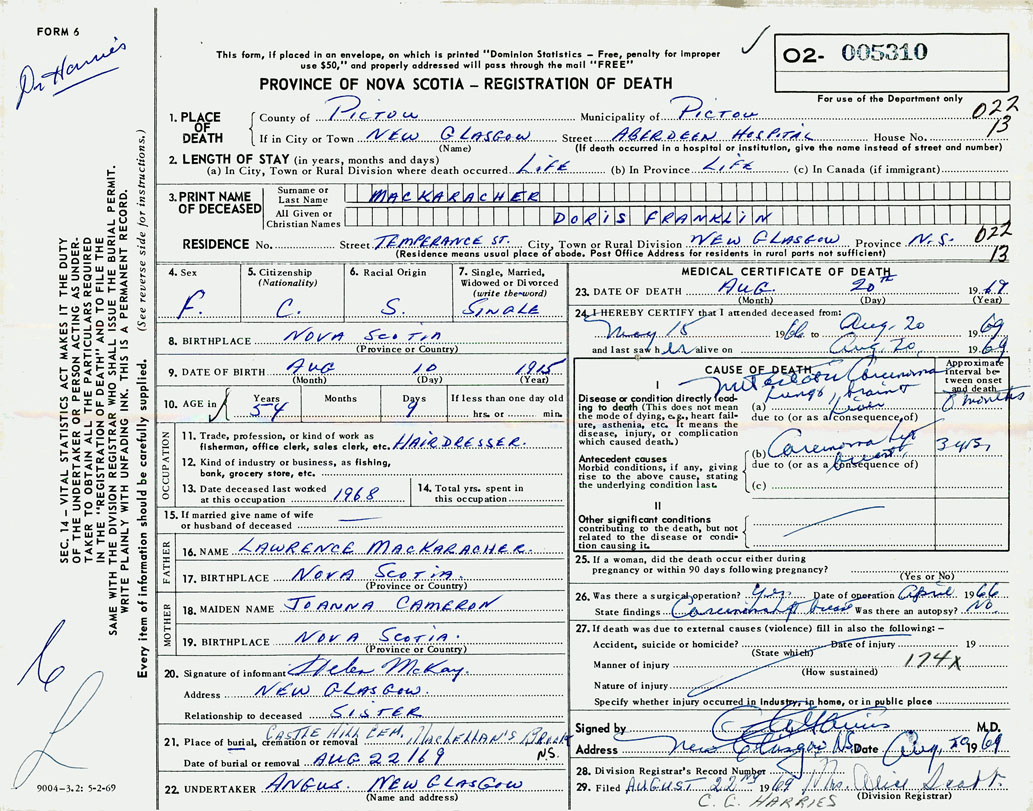 FORM 6
Dr Harries
This form, if placed in an envelope, on which is printed "Dominion Statistics – Free, penalty for improper
use $50," and properly addressed will pass through the mail "FREE"
PROVINCE OF NOVA SCOTIA – REGISTRATION OF DEATH
02- 005310
For use of the Department only
022
13
1. PLACE OF DEATH
County of PICTOU Municipality of PICTOU
If in City or Town NEW GLASGOW Street ABERDEEN HOSPITAL House No.
(Name) (If death occurred in a hospital or institution, give the name instead of street and number)
2. LENGTH OF STAY (in years, months and days)
(a) In City, Town or Rural Division where death occurred LIFE (b) In Province LIFE (c) In Canada (if immigrant)
3. PRINT NAME OF DECEASED
Surname or Last Name MACKARACHER
All Given or Christian Names DORIS FRANKLIN
RESIDENCE No. Street TEMPERANCE ST. City, Town or Rural Division NEW GLASGOW Province N.S.
022
13
(Residence means usual place of abode. Post Office Address for residents in rural parts not sufficient)
4. Sex F.
5. Citizenship (Nationality) C.
6. Racial Origin S.
7. Single, Married, Widowed or Divorced (write the word) SINGLE
8. BIRTHPLACE NOVA SCOTIA
(Province or Country)
9. DATE OF BIRTH AUG 10 1915
(Month) (Day) (Year)
10. AGE in Years 54 Months Days 9 If less than one day old hrs. or min.
OCCUPATION
11. Trade, profession, or kind of work as
fisherman, office clerk, sales clerk, etc. HAIRDRESSER.
12. Kind of industry or business, as fishing,
bank, grocery store, etc.
13. Date deceased last worked
at this occupation 1968
14. Total yrs. spent in
this occupation
15. If married give name of wife
or husband of deceased
FATHER
16. NAME LAWRENCE MACKARACHER.
17. BIRTHPLACE NOVA SCOTIA.
(Province or Country)
MOTHER
18. MAIDEN NAME JOANNA CAMERON
19. BIRTHPLACE NOVA SCOTIA.
(Province or Country)
20. Signature of informant Helen McKay.
Address NEW GLASGOW.
Relationship to deceased SISTER
21. Place of burial, cremation or removal CASTLE HILL CEM. MACLELLAN'S BROOK
N.S.
Date of burial or removal AUG 22/69
22. UNDERTAKER ANGUS. NEW GLASGOW
(Name and address)
MEDICAL CERTIFICATE OF DEATH
23. DATE OF DEATH AUG. 20th 1969
(Month) (Day) (Year)
24. I HEREBY CERTIFY that I attended deceased from:
May 15 1966 to Aug. 20 1969
and last saw her alive on Aug. 20, 1969
CAUSE OF DEATH
Approximate interval between onset and death
I
Disease or condition directly leading to death (This does not mean
the mode of dying, e.g., heart failure, asthenia, etc. It means the
disease, injury, or complication
which caused death.)
Carcinoma
(a) Lungs, brain
Liver
8 months
due to (or as a consequence of)
Antecedent causes
Morbid conditions, if any, giving
rise to the above cause, stating
the underlying condition last.
(b) Carcinoma Left
breast
3 yrs,
due to (or as a consequence of)
(c)
II
Other significant conditions
contributing to the death, but not
related to the disease or condition causing it.
25. If a woman, did the death occur either during
pregnancy or within 90 days following pregnancy?
(Yes or No)
26. Was there a surgical operation? Yes. Date of operation April 1966
State findings Carcinoma of breast Was there an autopsy? No.
27. If death was due to external causes (violence) fill in also the following: –
Accident, suicide or homicide? Date of injury 19
(State which)
174X
Manner of injury
(How sustained)
Nature of injury
Specify whether injury occurred in Industry, in home, or in public place
Signed by M.D.
Address New Glasgow NS Date Aug. 1969
28. Division Registrar's Record Number
29. Filed AUGUST 22ND 1969 Mrs. Alice Scott.
(Division Registrar)
C. G. HARRIES
SEC. 14 – VITAL STATISTICS ACT MAKES IT THE DUTY
OF THE UNDERTAKER OR PERSON ACTING AS UNDERTAKER TO OBTAIN ALL THE PARTICULARS REQUIRED
IN THE "REGISTRATION OF DEATH" AND TO FILE THE
SAME WITH THE DIVISION REGISTRAR WHO SHALL ISSUE THE BURIAL PERMIT.
WRITE PLAINLY WITH UNFADING INK. THIS IS A PERMANENT RECORD.
Every item of information should be carefully supplied. (See reverse side for instructions.)
9004–3.2: 5-2-69